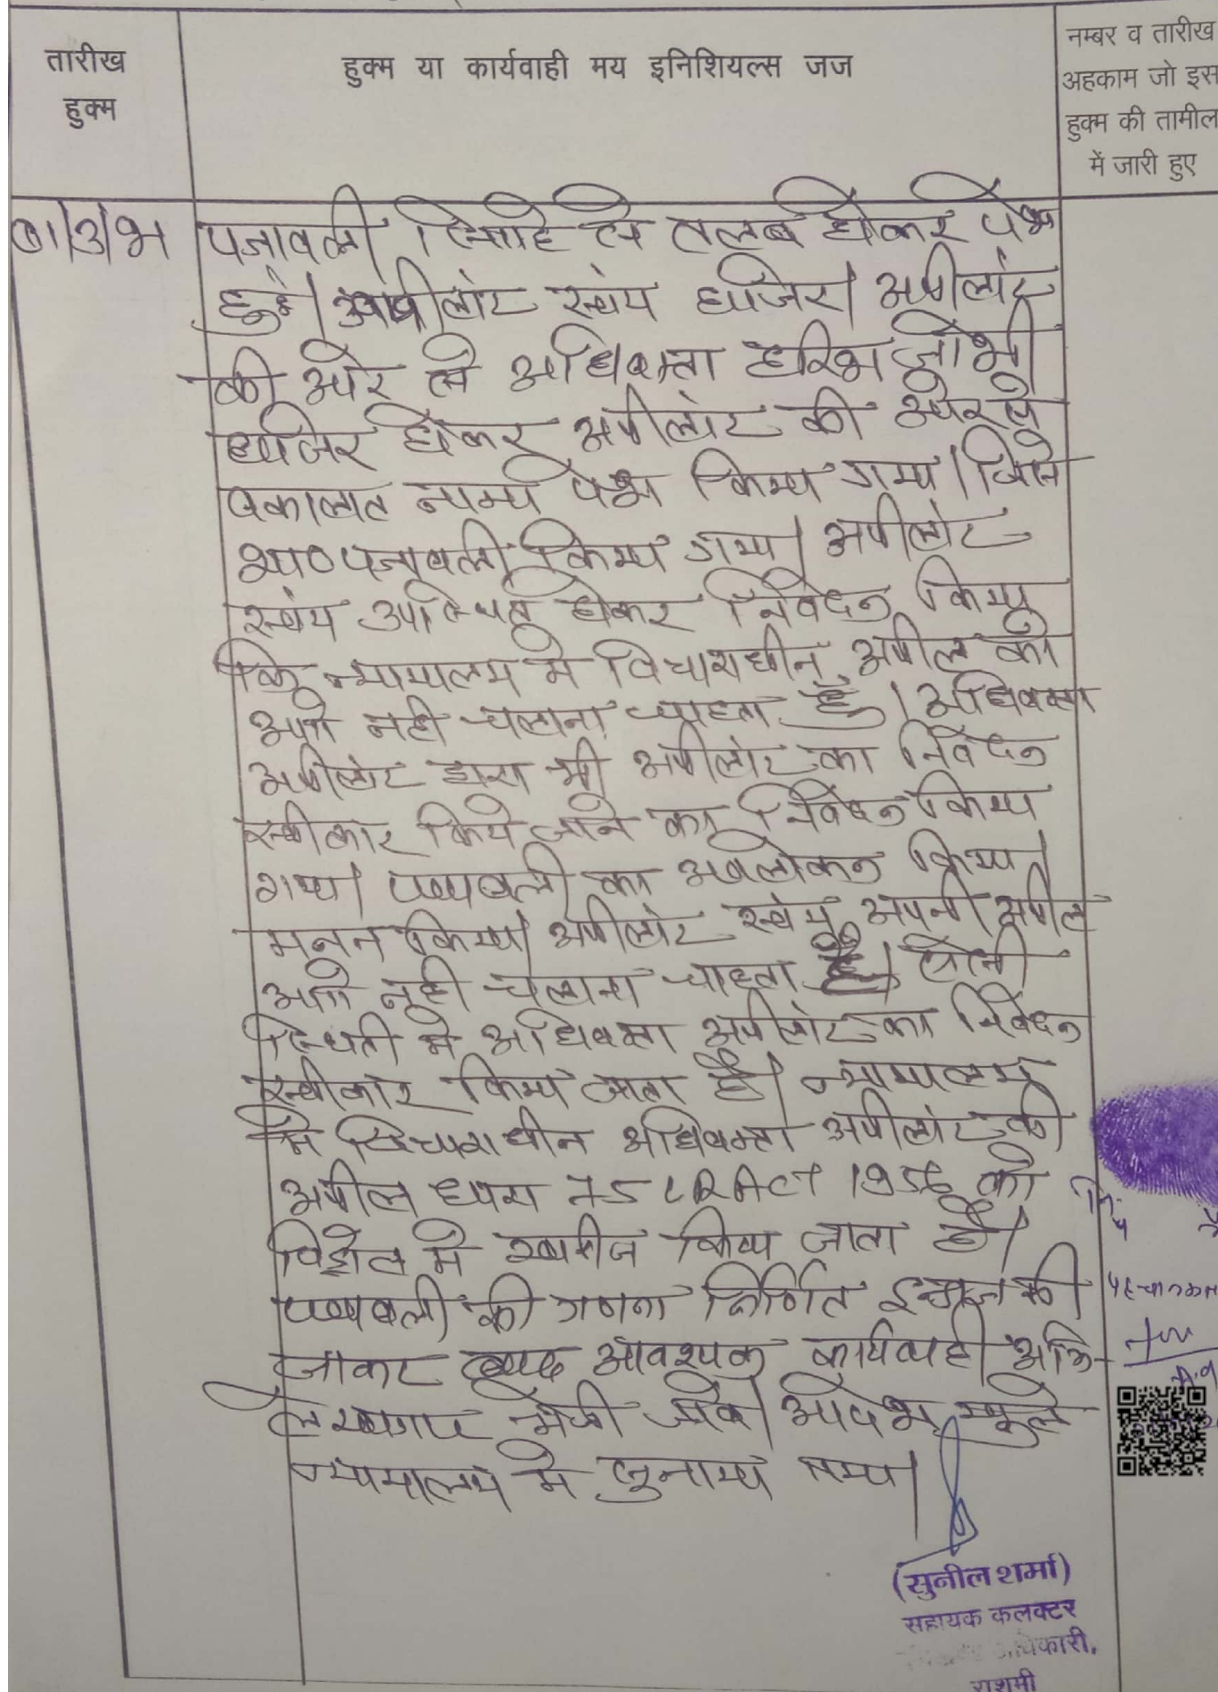 तारीख
हुक्म
हुक्म या कार्यवाही मय इनिशियल्स जज
नम्बर व तारीख
अहकाम जो इस
हुक्म की तामील
में जारी हुए
पत्रावली से तलब होकर पेश
हुई। अपीलांट स्वंय हाजिर। अपीलांट
की ओर से अधिवक्ता हरिश जोशी
हाजिर होकर अपीलांट की ओर से
वकालत नामा पेश किया गया। जिसे
शा० पत्रावली किया गया। अपीलांट
स्वंय उपस्थित होकर निवेदन किया
कि न्यायालय मे विचाराधीन अपील को
आगे नही चलाना चाहता हूँ। अधिवक्ता
अपीलांट द्वारा भी अपीलांट का निवेदन
स्वीकार किये जाने का निवेदन किया
गया। पत्रावली का अवलोकन किया।
मनन किया। अपीलांट स्वंय अपनी अपील
आगे नही चलाना चाहता है। ऐसी
स्थिती मे अधिवक्ता अपीलांट का निवेदन
स्वीकार किया जाता है। न्यायालय
मे विचाराधीन अधिवक्ता अपीलांट की
अपील धारा 75 LR ACT 1956 को
विड्रोल मे खारीज किया जाता है।
पत्रावली की गणना निर्णित इन्द्राज की
जाकर बाद आवश्यक कार्यवाही अभि-
लेखागार भेजी जावे। आदेश खुले
न्यायालय मे सुनाया गया।
(सुनील शर्मा)
सहायक कलक्टर
राशमी